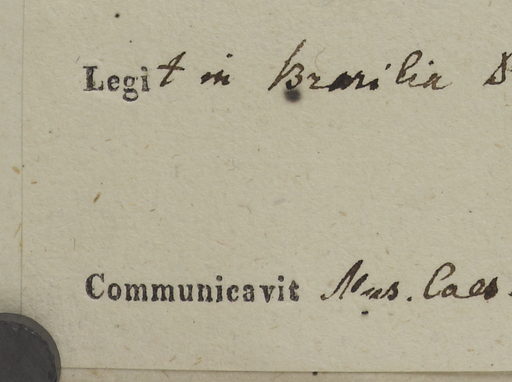 Legit in Brasilia
Communicavit Mus. Caes.